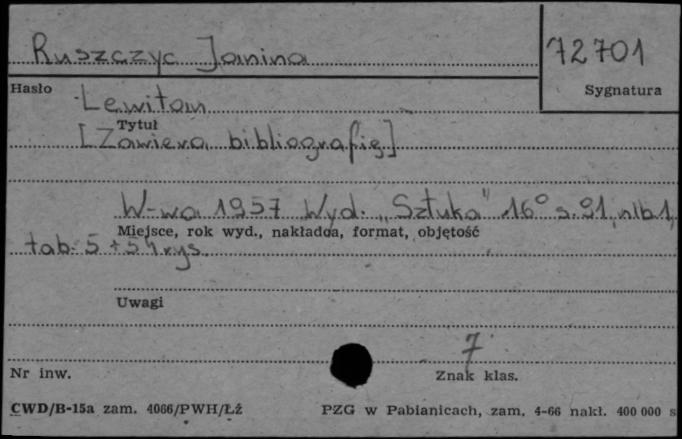 Ruszczyc Janina
72701
Hasło
Sygnatura
Lewitan
Tytuł
[Zawiera bibliografię]
W-wa 1957 Wyd. „Sztuka" 16° s. 91, nlb 1,
Miejsce, rok wyd., nakładca, format, objętość
tab. 5 + 54 rys.
Uwagi
7
Nr inw.
Znak klas.
CWD/B-15a zam. 4066/PWH/Łź
PZG w Pabianicach, zam. 4-66 nakł. 400 000 s